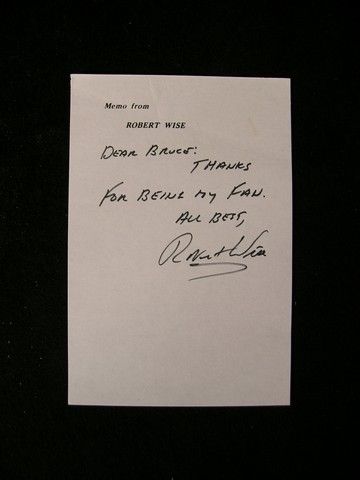 Memo from
ROBERT WISE
DEAR BRUCE:
THANKS
FOR BEING MY FAN.
ALL BEST,
Robert Wise